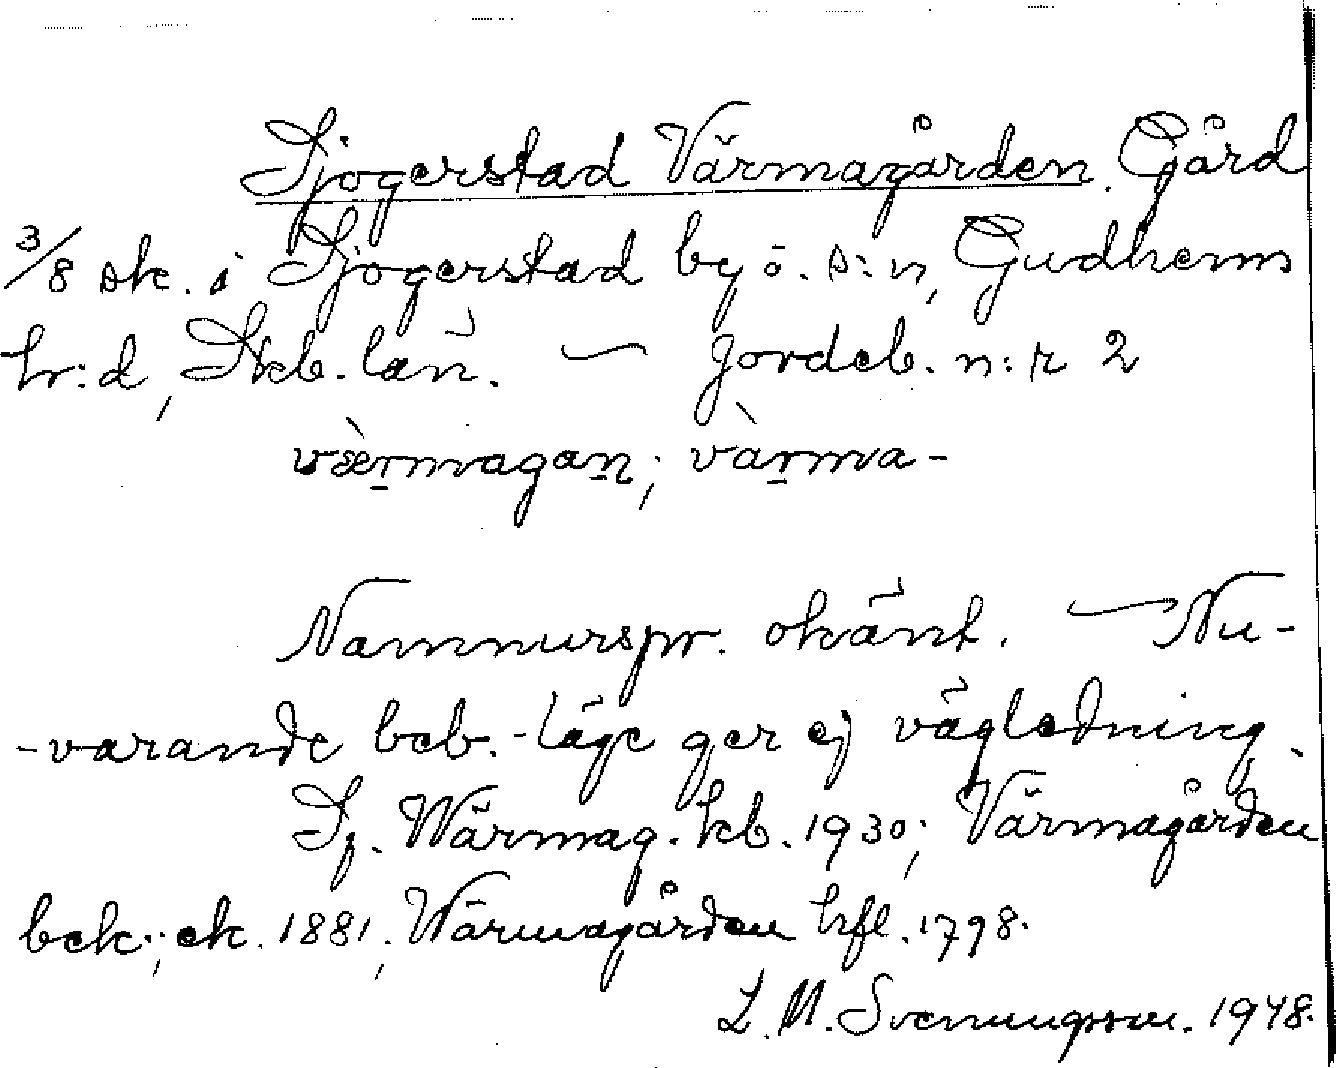 Sjogerstad Värmagården. Gård
3/8 sk. i Sjogerstad by o. s:n, Gudhems
hr:d, Skb. län. — Jordeb. n:r 2
væ̀rmagan; vàrma-
Namnurspr. okänt. — Nu-
-varande beb.-läge ger ej vägledning.
Sj. Wärmag. kb. 1930; Värmagården
bek; ek. 1881; Wärmagården hfl. 1798.
L. M. Svenungsson. 1948.